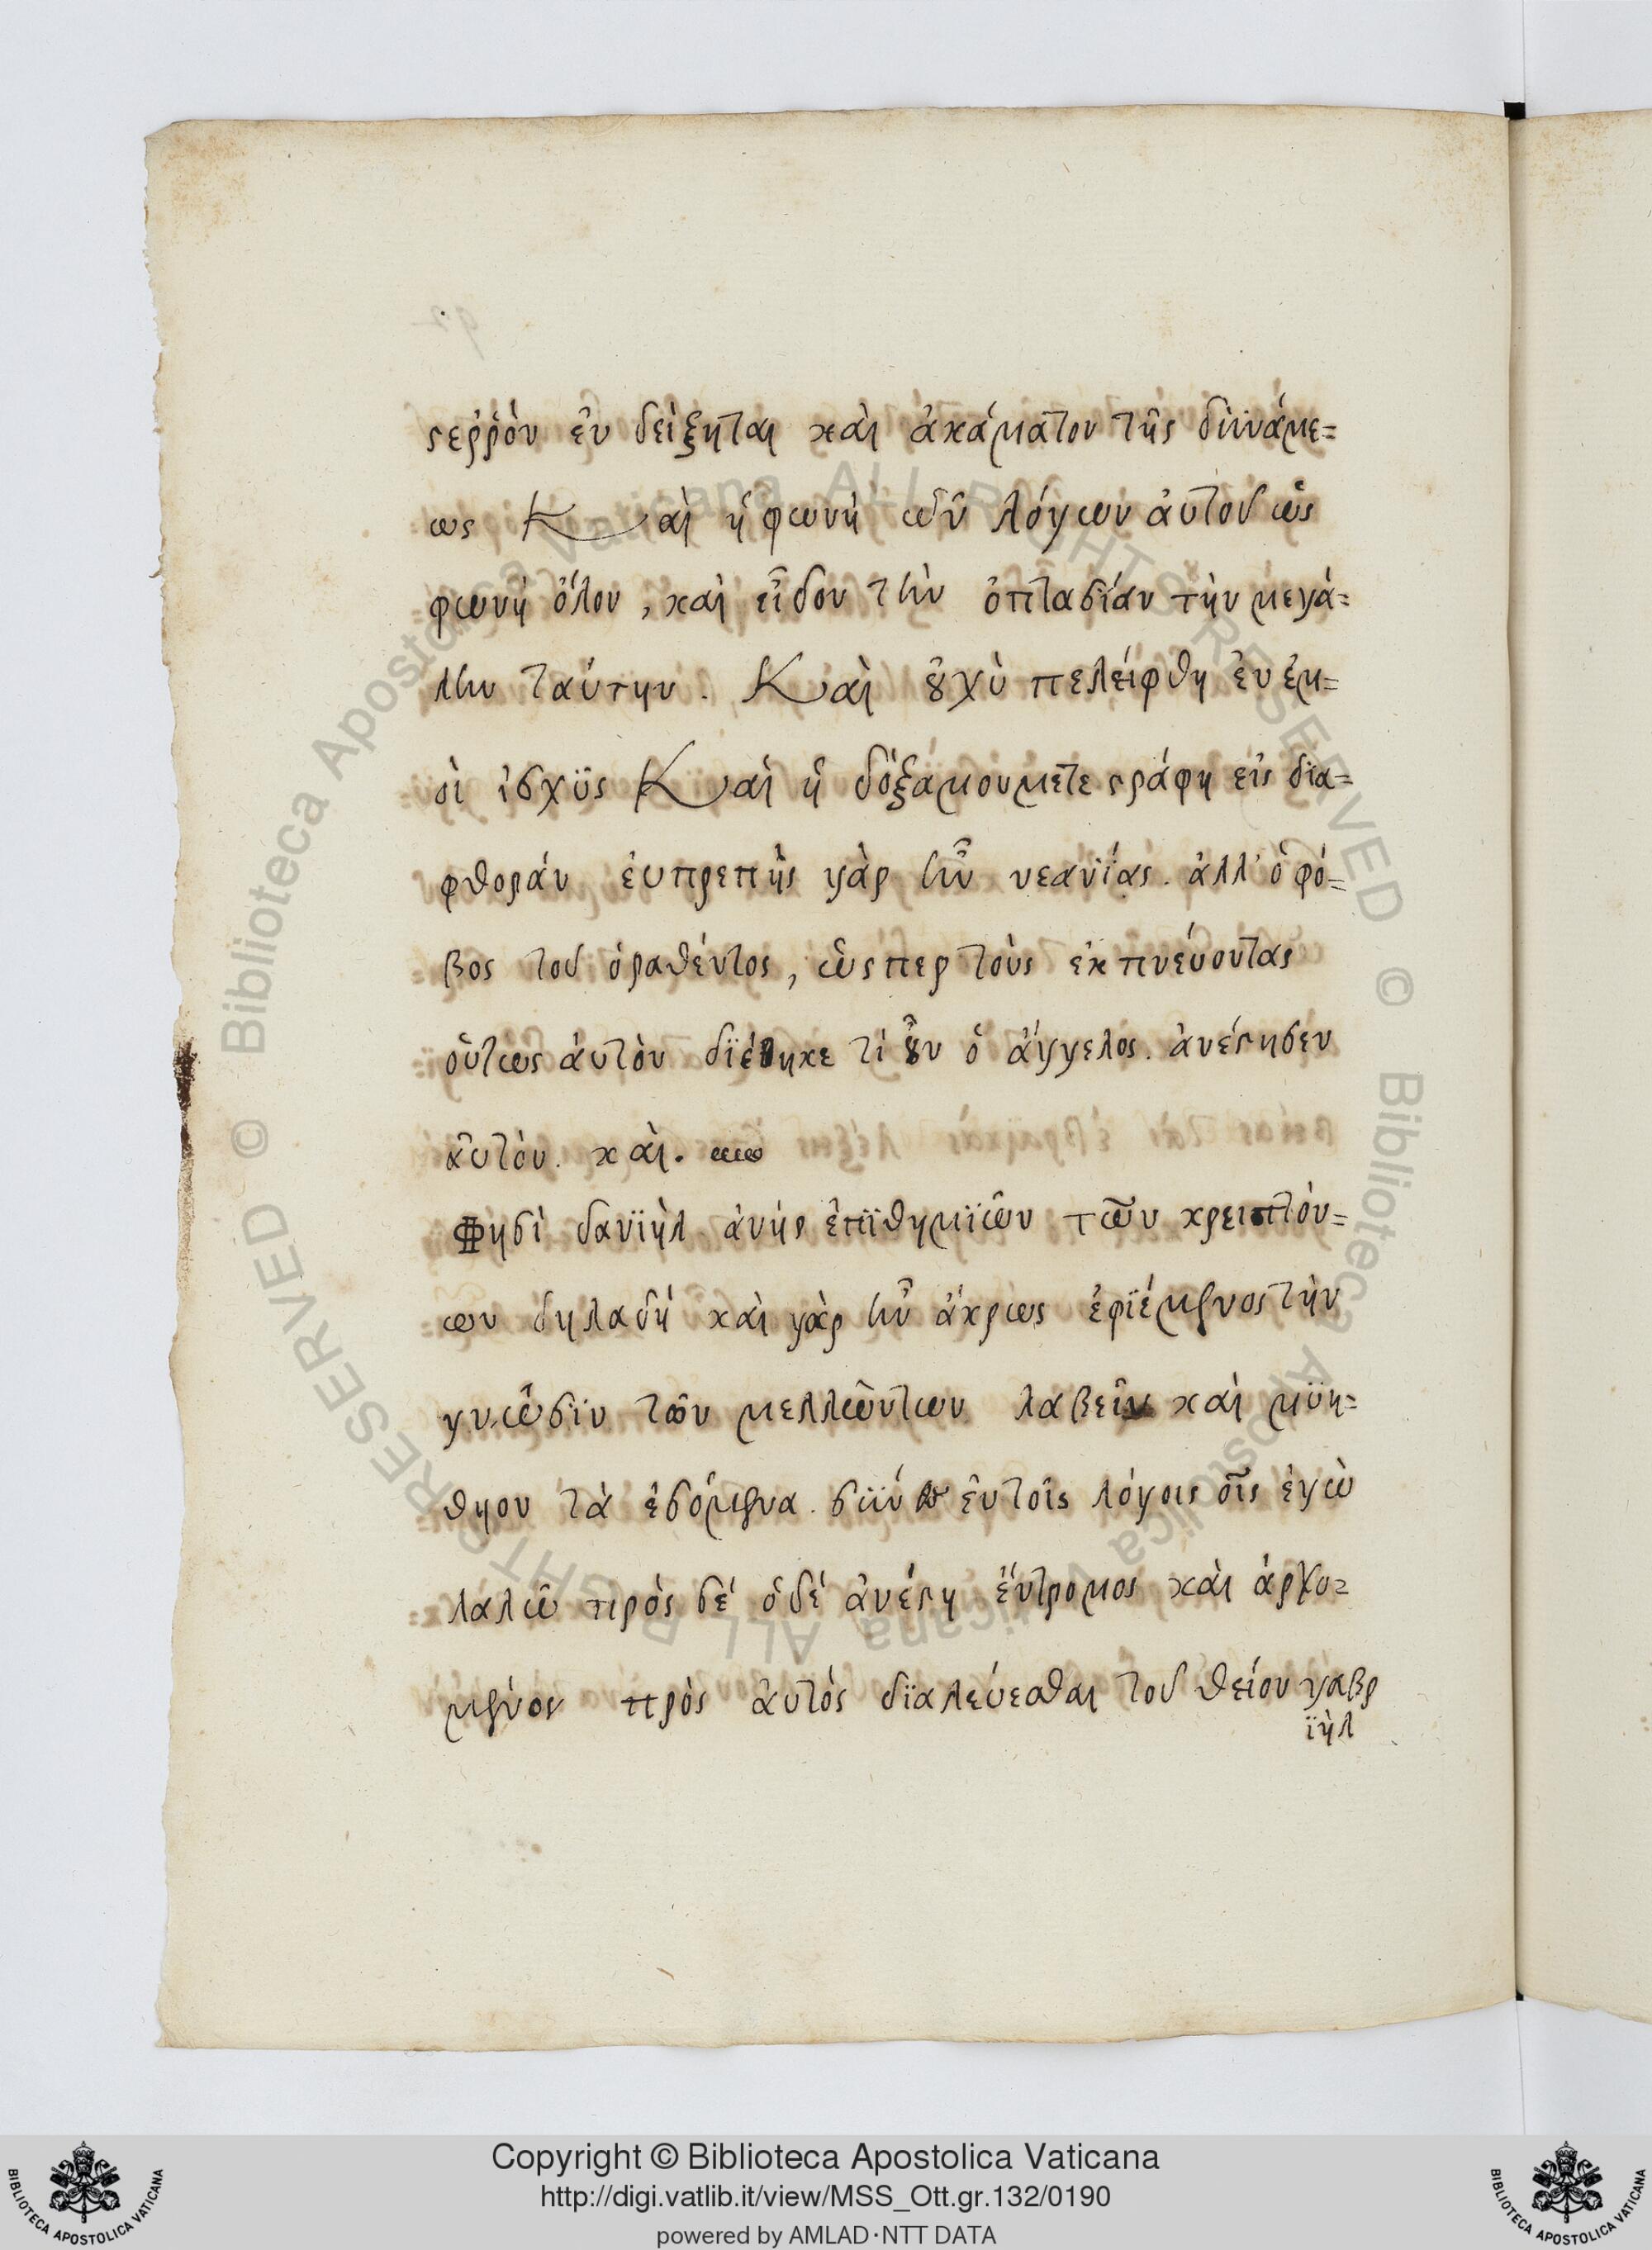 ϛεῤῥὸν ἐν δείξηται καὶ ἀκάματον τῆς δϋνάμε=
ως Καὶ ἡ φωνὴ ὧν λόγων ἀυτοῦ ὡς
φωνὴ ὅλου, καὶ εἶδον τὴν ὀπτασίαν τὴν μεγά=
λην ταύτην. Καὶ ȣ̓χὺ πελείφθη ἐν ἐμ=
οὶ ἰσχϋς Καὶ ἡ δόξαμου μετεϛράφη εἰς δια=
φθοράν ἐυπρεπὴς γὰρ ἦν νεανΐας. ἀλλ' ὁ φό=
βος τοῦ ὁραθέντος, ὥςπερ τοὺς ἐκπνέυοντας
οὕτως ἀυτὸν διέθηκε τί ȣ̓͂ν ὁ ἄγγελος. ἀνέϛησεν
ἀυτὸν. καὶ.
Φησὶ δανϊὴλ ἀνὴρ ἐπϊθημϊῶν τῶν κρειπτόν=
ων δηλαδή καὶ γὰρ ἦν ἄκρως ἐφϊέμενος τὴν
γνῶσϊν τῶν μελλῶντων λαβεῖν καὶ μϋη=
θηου τὰ ἐσόμενα. σϋν ἐν τοῖς λόγοις οἷς ἐγὼ
λαλῶ πρὸς σέ ὁδέ ἀνέϛη ἔντρομος καὶ ἀρχο=
μένος πρὸς ἀυτὸς δϊαλεύεσθαι τοῦ θείου γαβρ
ϊὴλ
Copyright © Biblioteca Apostolica Vaticana
http://digi.vatlib.it/view/MSS_Ott.gr.132/0190
powered by AMLAD · NTT DATA
BIBLIOTECA APOSTOLICA VATICANA
BIBLIOTECA APOSTOLICA VATICANA
© Biblioteca Apostolica Vaticana ALL RIGHTS RESERVED
© Biblioteca Apostolica Vaticana ALL RIGHTS RESERVED